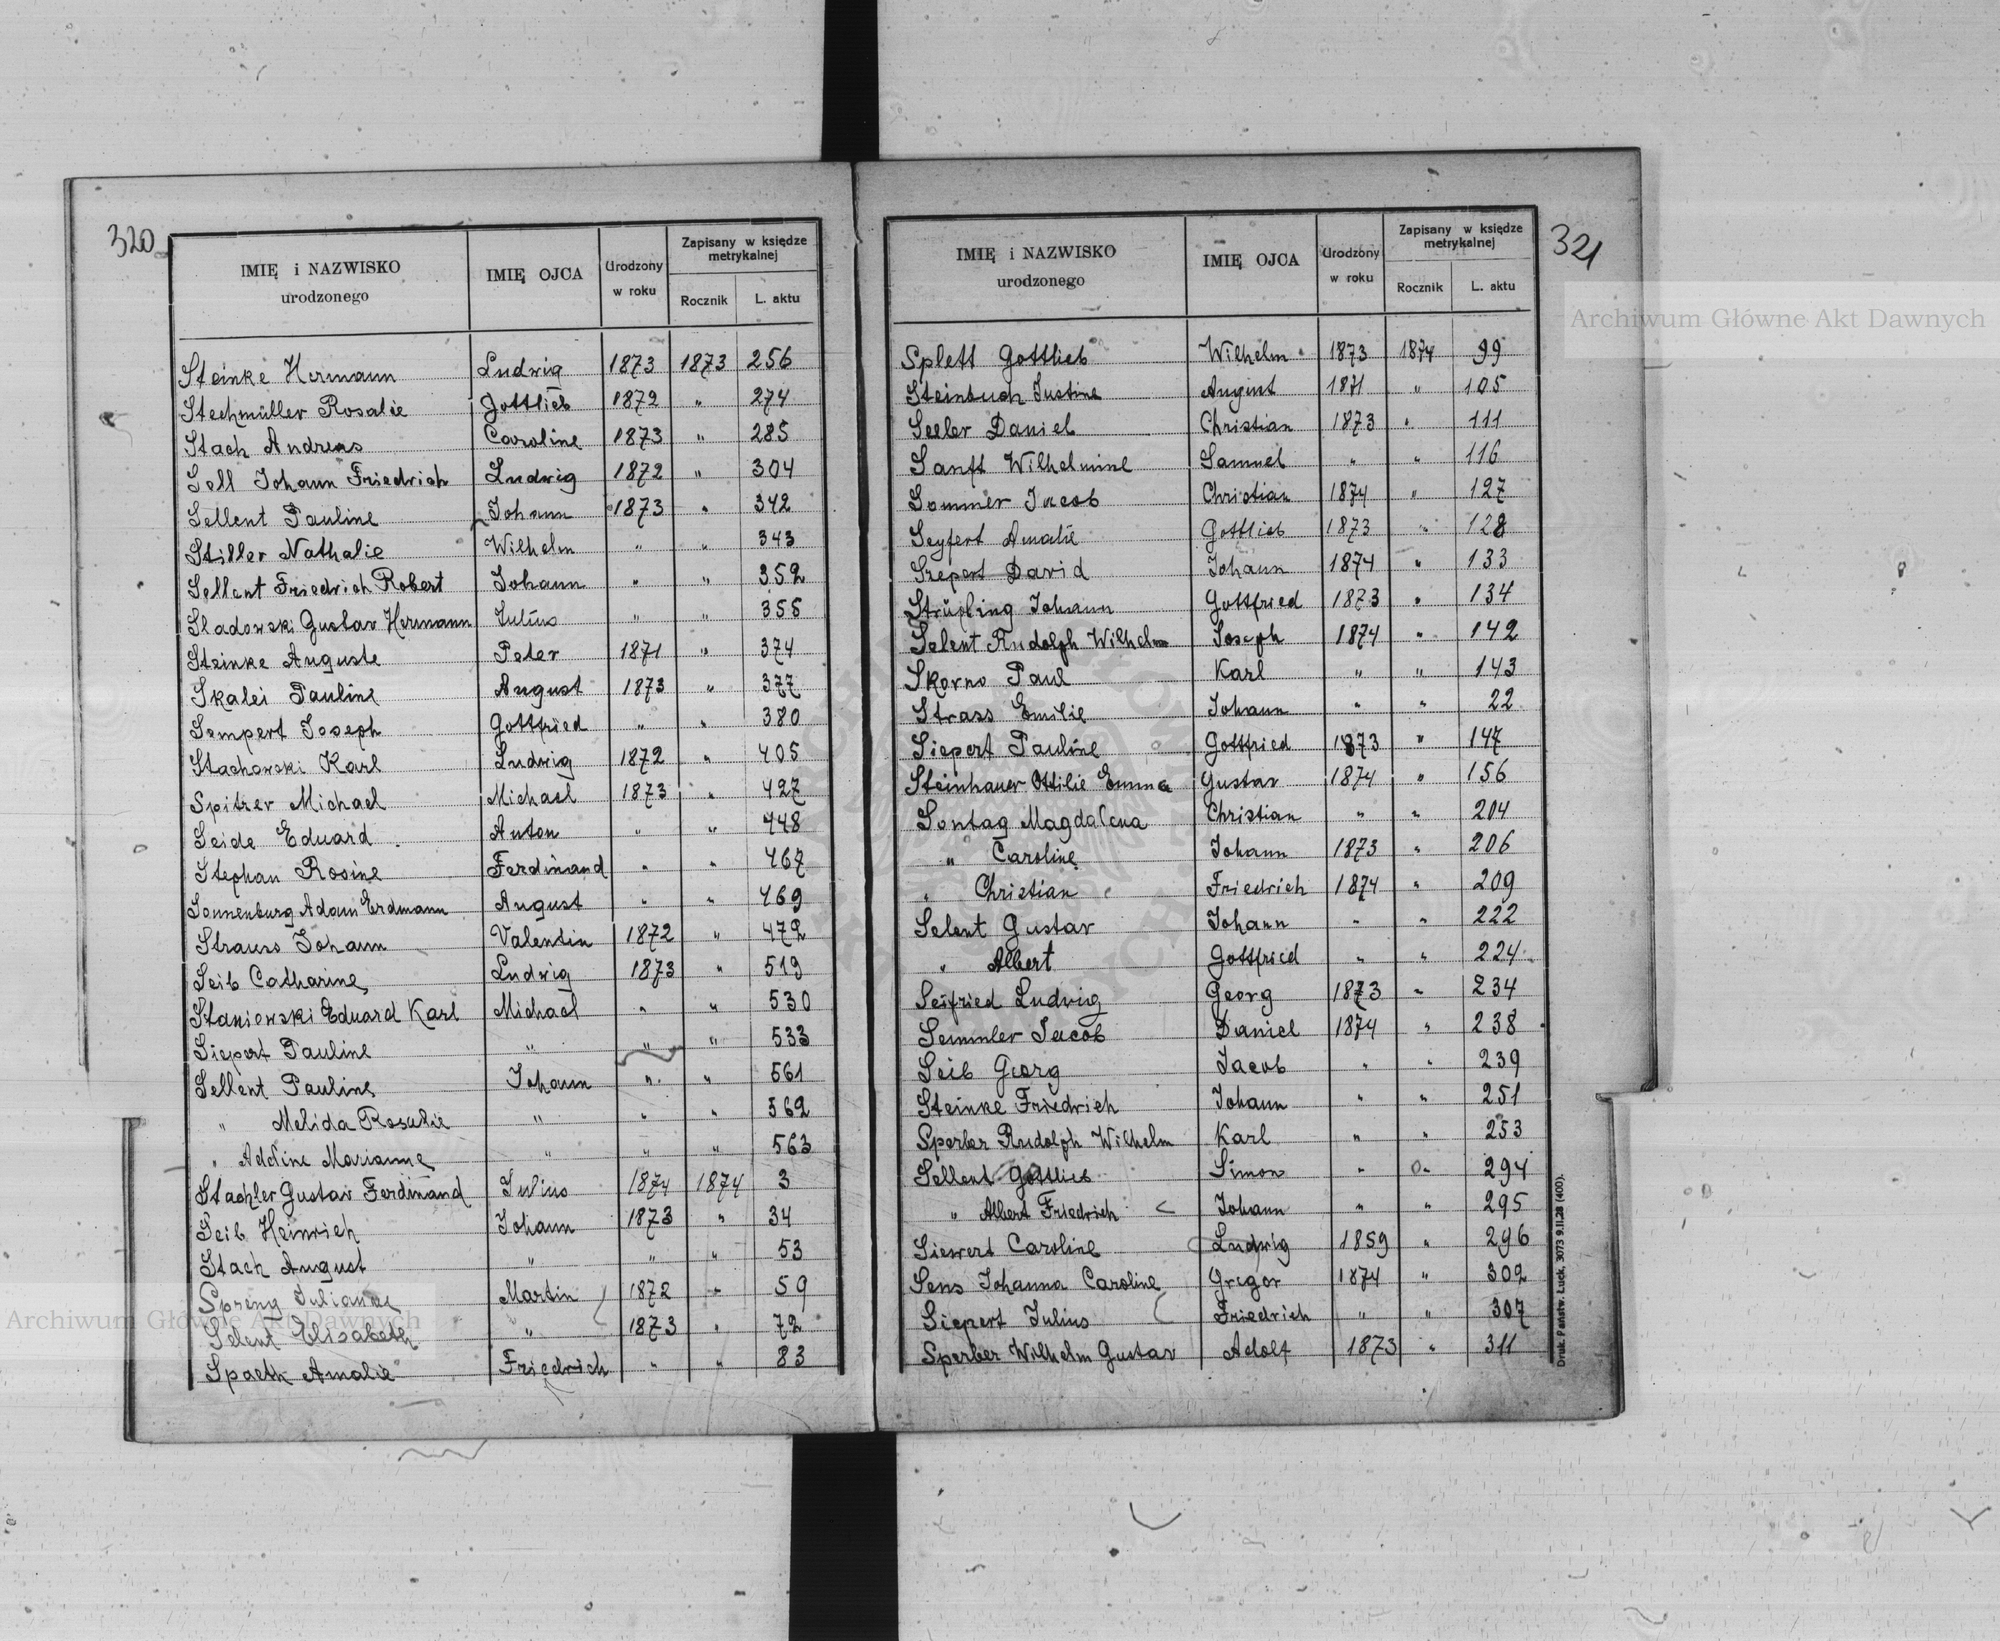 320
IMIĘ i NAZWISKO urodzonego | IMIĘ OJCA | Urodzony w roku | Zapisany w księdze metrykalnej
Rocznik | L. aktu
Steinke Hermann | Ludwig | 1873 | 1873 | 256
Stechmüller Rosalie | Gottlieb | 1872 | " | 274
Stach Andreas | Caroline | 1873 | " | 285
Sell Johann Friedrich | Ludwig | 1872 | " | 304
Sellent Pauline | Johann | 1873 | " | 342
Stiller Nathalie | Wilhelm | " | " | 343
Sellent Friedrich Robert | Johann | " | " | 352
Sladowski Gustav Hermann | Julius | " | " | 355
Steinke Auguste | Peter | 1871 | " | 374
Skalei Pauline | August | 1873 | " | 377
Sempert Joseph | Gottfried | " | " | 380
Stachowski Karl | Ludwig | 1872 | " | 405
Spitzer Michael | Michael | 1873 | " | 427
Seide Eduard | Anton | " | " | 448
Stephan Rosine | Ferdinand | " | " | 467
Sonnenburg Adam Erdmann | August | " | " | 469
Strauss Johann | Valentin | 1872 | " | 472
Seib Catharine | Ludwig | 1873 | " | 519
Staniewski Eduard Karl | Michael | " | " | 530
Siepert Pauline | " | " | " | 533
Sellent Pauline | Johann | " | " | 561
" Melida Rosalie | " | " | " | 562
" Adeline Marianne | " | " | " | 563
Stachler Gustav Ferdinand | Julius | 1874 | 1874 | 3
Seib Heinrich | Johann | 1873 | " | 34
Stach August | " | " | " | 53
Spreng Julianne | Martin | 1872 | " | 59
Selent Elisabeth | " | 1873 | " | 72
Spaeth Amalie | Friedrich | " | " | 83
321
IMIĘ i NAZWISKO urodzonego | IMIĘ OJCA | Urodzony w roku | Zapisany w księdze metrykalnej
Rocznik | L. aktu
Splett Gottlieb | Wilhelm | 1873 | 1874 | 99
Steinbuch Justine | August | 1871 | " | 105
Seeler Daniel | Christian | 1873 | " | 111
Sanft Wilhelmine | Samuel | " | " | 116
Sommer Jacob | Christian | 1874 | " | 127
Seyfert Amalie | Gottlieb | 1873 | " | 128
Szepert David | Johann | 1874 | " | 133
Johann | Gottfried | 1873 | " | 134
Selent Rudolph Wilhelm | Joseph | 1874 | " | 142
Skorno Paul | Karl | " | " | 143
Strass Emilie | Johann | " | " | 22
Siepert Pauline | Gottfried | 1873 | " | 147
Steinhauer Ottilie Emma | Gustav | 1874 | " | 156
Sontag Magdalena | Christian | " | " | 204
" Caroline | Johann | 1873 | " | 206
" Christian | Friedrich | 1874 | " | 209
Selent Gustav | Johann | " | " | 222
" Albert | Gottfried | " | " | 224
Seifried Ludwig | Georg | 1873 | " | 234
Semmler Jacob | Daniel | 1874 | " | 238
Seib Georg | Jacob | " | " | 239
Steinke Friedrich | Johann | " | " | 251
Sperber Rudolph Wilhelm | Karl | " | " | 253
Sellent Gottlieb | Simon | " | " | 294
" Albert Friedrich | Johann | " | " | 295
Siewert Caroline | Ludwig | 1859 | " | 296
Sens Johanna Caroline | Gregor | 1874 | " | 302
Siepert Julius | Friedrich | " | " | 307
Sperber Wilhelm Gustav | Adolf | 1873 | " | 311
Druk. Państw. Łuck, 3073 9.II.28 (400).
Archiwum Główne Akt Dawnych
Archiwum Główne Akt Dawnych